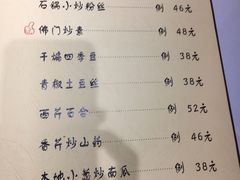 石锅小炒粉丝 例 46元
佛门炒素 例 48元
干煸四季豆 例 38元
青椒土豆丝 例 38元
西芹百合 例 52元
香芹炒山药 例 46元
本地小葱炒南瓜 例 38元